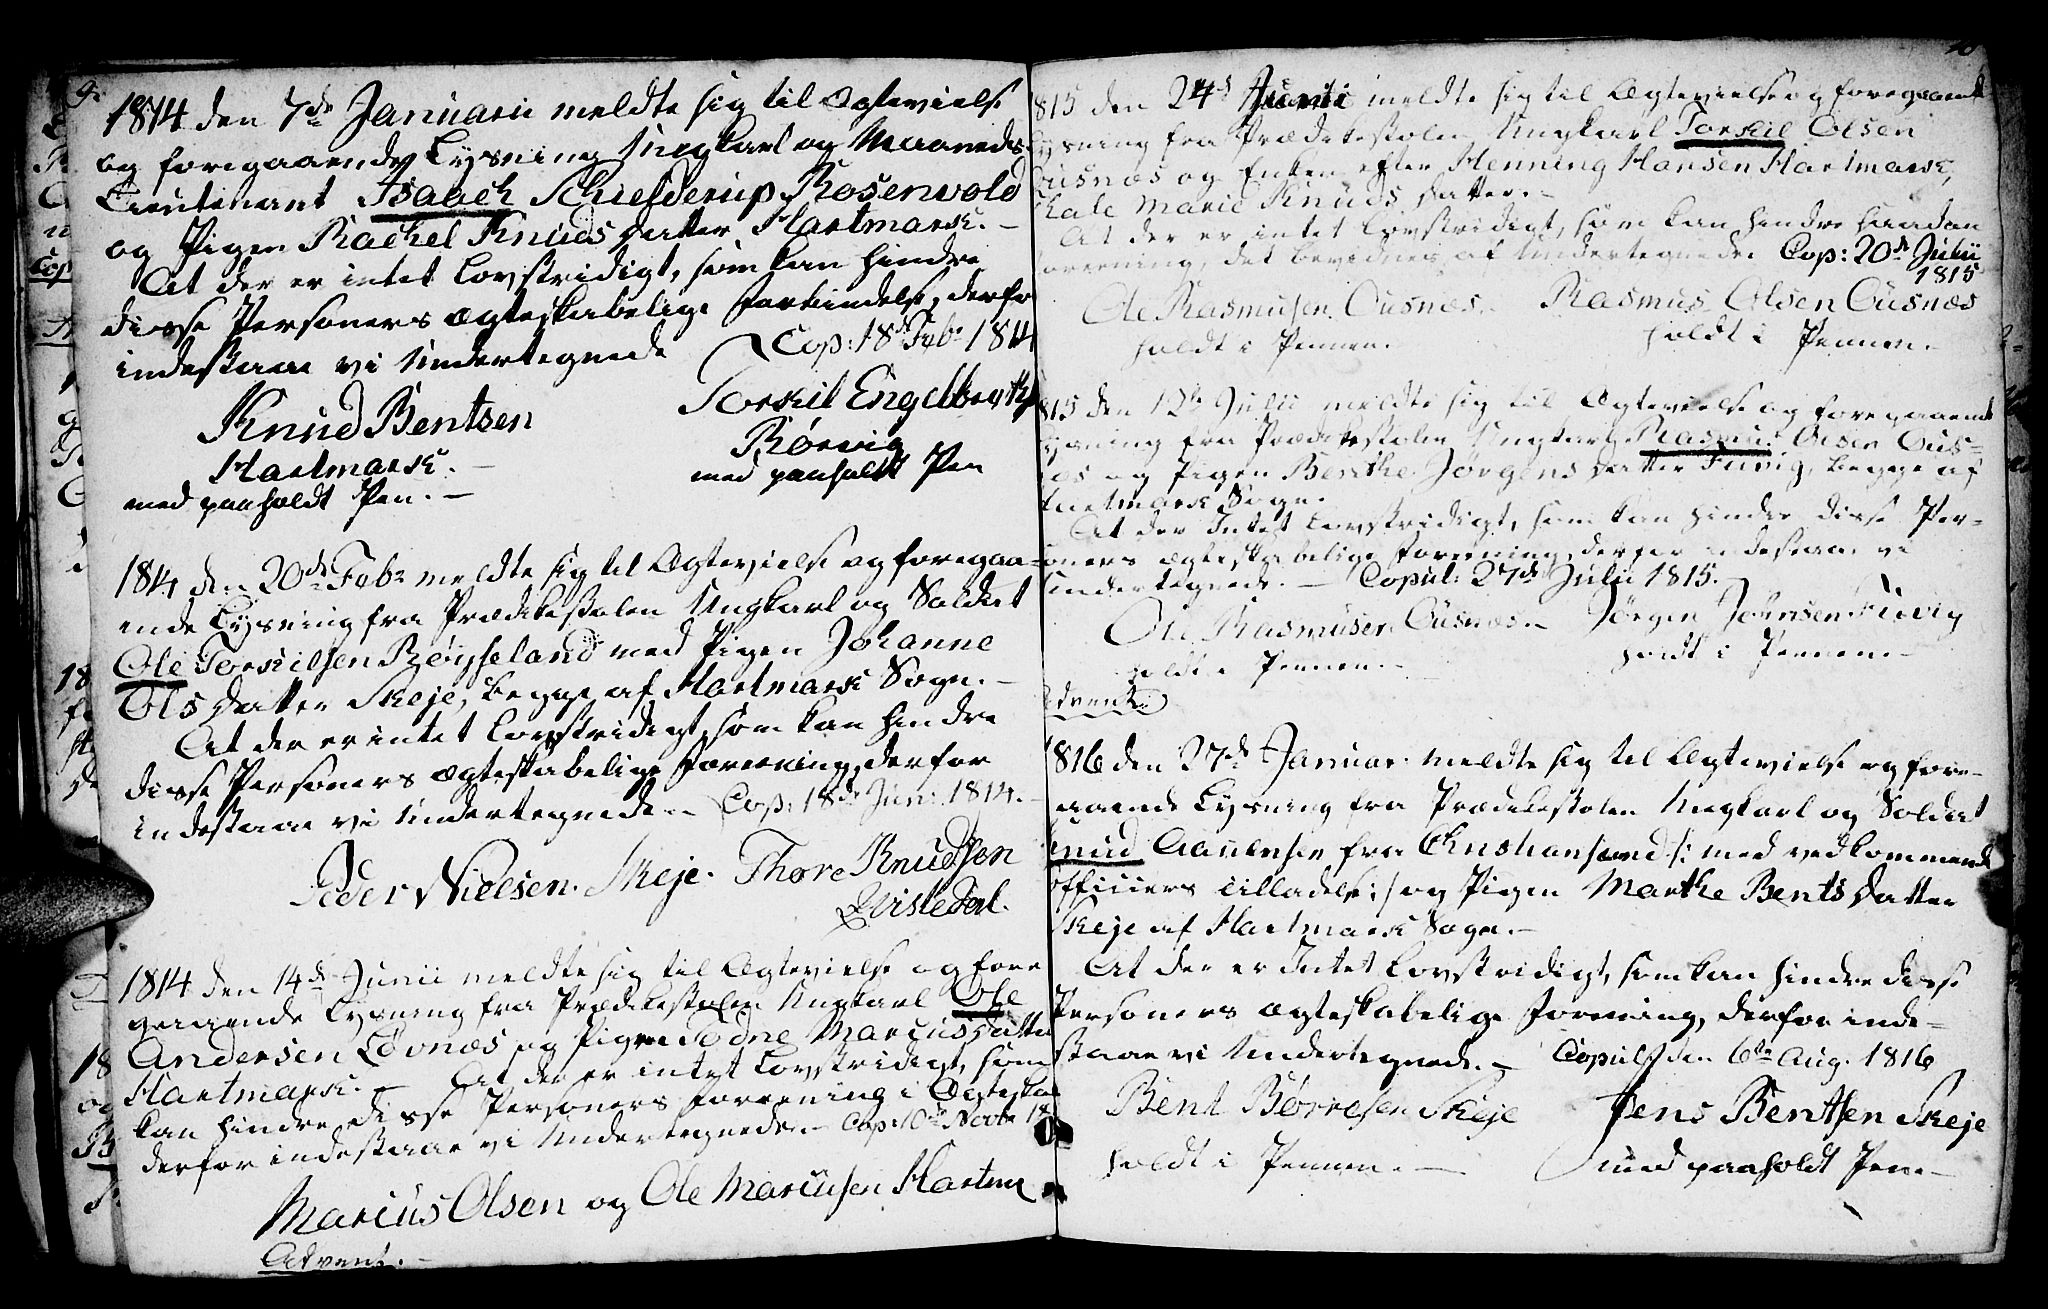 9.
1814 den 7de Januarii meldte sig til Ægtevielse
og foregaaende Lysning Ungkarl og Maaneds
Lieutenant Isaach Schielderup Rosenvold
og Pigen Rachel Knuds Datter Hartmark. -
At der er intet Lovstridigt, som kan hindre
disse Personers Ægteskabelige Forbindelse, derfor
indestaae vi Undertegnede Cop: 18de Febr 1814
Knud Bentsen
Hartmark. -
med paaholdt Pen. -
Torkil Engelbregts
Rørvig
med paaholdt Pen
1814 den 20de Febr meldte sig til Ægtevielse og foregaa-
ende Lysning fra Prædikestolen Ungkarl og Soldat
Ole Torkilsen Røysseland med Pigen Johanne
Ols Datter Skeje, begge af Hartmark Sogn. -
At der er intet Lovstridigt, som kan hindre
disse Personers Ægteskabelige Foreening, derfor
indestaae vi Undertegnede. - Cop: 18de Juni 1814. -
Peder Nielsen Skeje. Thore Knudsen
Qvisledal.
1814 den 14de Junii meldte sig til Ægtevielse og fore
gaaende Lysning fra Prædikestolen Ungkarl Ole
Andersen Løvnæs og Pigen Marcus Datter
Hartmark. - At der er intet Lovstridigt, som
kan hindre disse Personers Foreening i Ægteskab
derfor indestaae vi Undertegnede. - Cop: 10de Novbr 18
Marcus Olsen og Ole Marcusen Hartm
Advent. -
10
815 den 24de Junii meldte sig til Ægtevielse og foregaaende
ysning fra Prædikestolen Ungkarl Torkil Olsen
Ousnæs og Enken efter Henning Hansen Hartmark,
Marie Knuds Datter. -
At der er intet Lovstridigt, som kan hindre saadan
foreening, det bevidnes af Undertegnede Cop: 20de Julii
1815
Ole Rasmusen Ousnæs. - Rasmus Olsen Ousnæs
holdt i Pennen. - holdt i Pennen. -
815 den 12te Julii meldte sig til Ægtevielse og foregaaende
ysning fra Prædikestolen Ungkarl Rasmus Olsen Ous-
æs og Pigen Benthe Jørgens Datter Fuvig, begge af
Hartmark Sogn.
At der Intet Lovstridigt, som kan hindre disse Per-
soners Ægteskabelige Foreening, derfor indestaae vi
Undertegnede. - Copul: 27de Julii 1815. -
Ole Rasmusen Ousnæs. - Jørgen Johnsen Fuvig
holdt i Pennen. - holdt i Pennen. -
Advent.
1816 den 27de Januar. meldte sig til Ægtevielse og fore-
gaaende Lysning fra Prædikestolen Ungkarl og Soldat
Knud Aanensen fra Christiansand /: med vedkommende
Officiers Tilladelse :/ og Pigen Marthe Bents Datter
Skeje af Hartmark Sogn. -
At der er Intet Lovstridigt, som kan hindre disse
Personers Ægteskabelige Foreening, derfor inde-
staae vi Undertegnede. - Copul: den 6te Aug. 1816
Bent Børresen Skeje Jens Bentsen Skeje
holdt i Pennen. - med paaholdt Pen. -